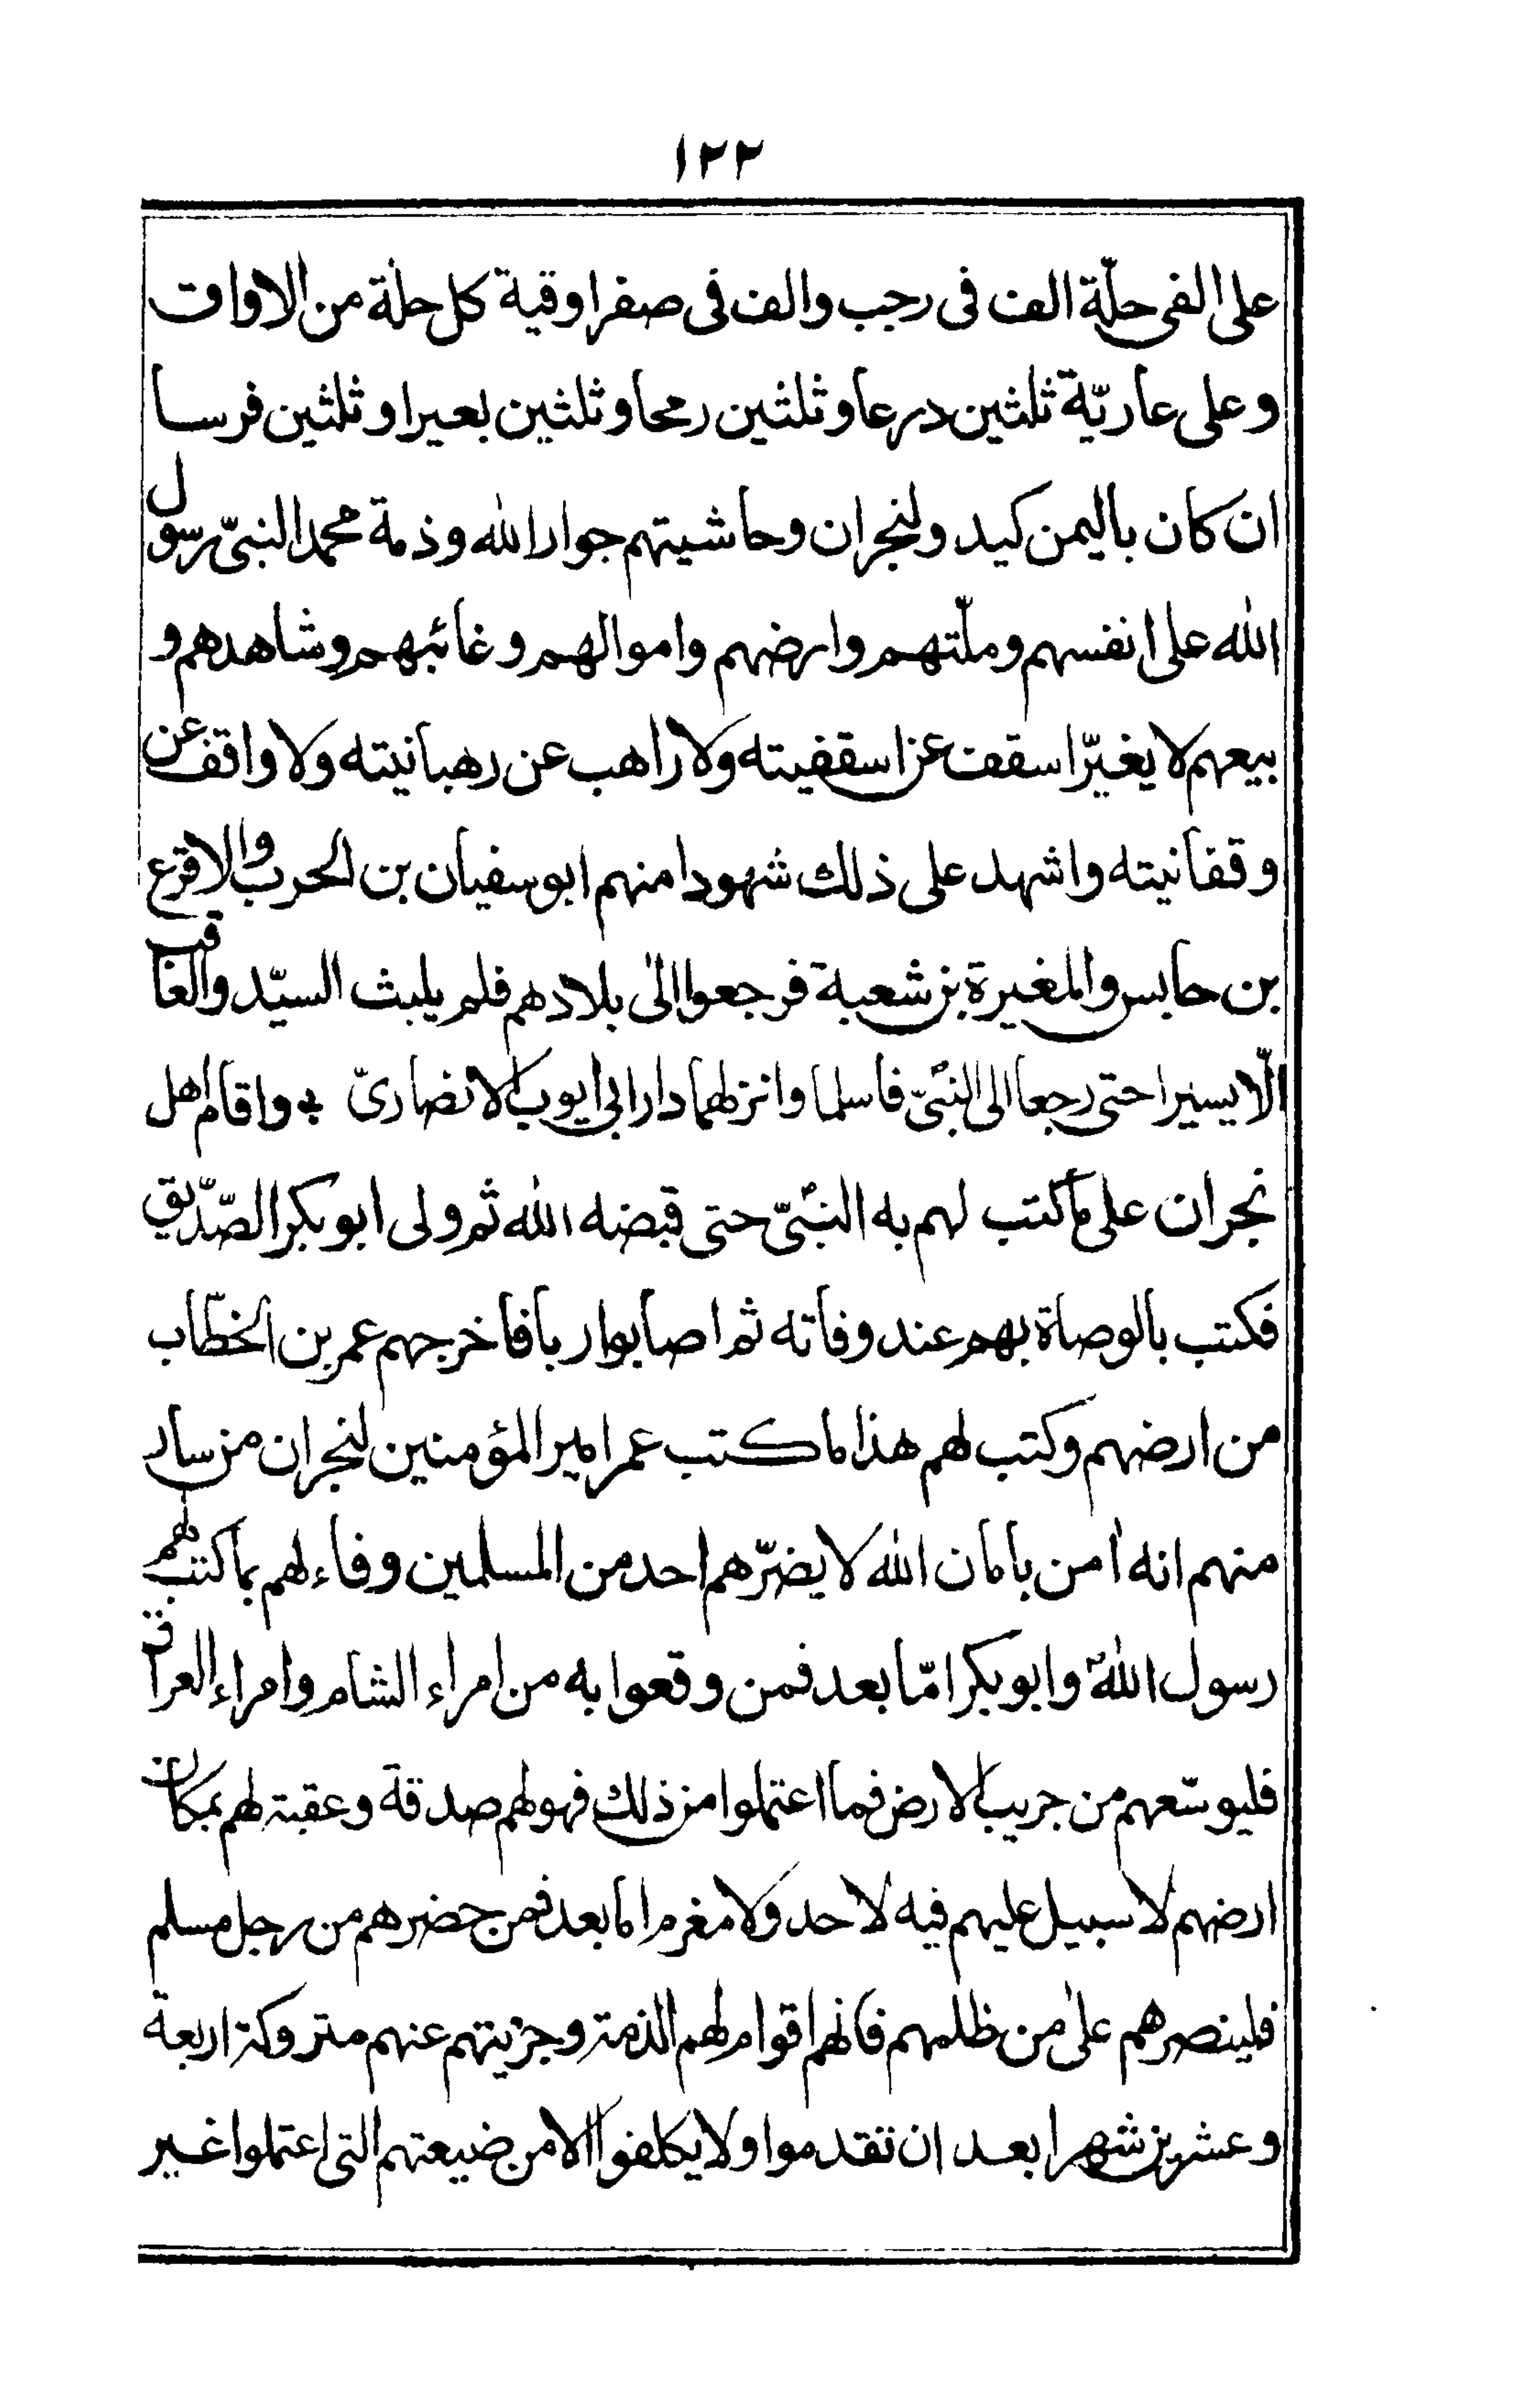 ١٢٢
على الفى حلّة الف فى رجب والف فى صفر اوقية كل حلة من الاواق
وعلى عاريّة ثلثين درعا وثلثين رمحا وثلثين بعيرا وثلثين فرسا
ان كان باليمن كيد ولنجران وحاشيتهم جوار الله وذمة محمد النبىّ رسول
الله على انفسهم وملّتهم وارضهم واموالهم وغائبهم وشاهدهم و
بيعهم لا يغيّر اسقف عن اسقفيته ولا راهب عن رهبانيته ولا واقف عن
وقفانيته واشهد على ذلك شهودا منهم ابو سفيان بن الحرب والاقرع
بن حابس والمغيرة بن شعبة فرجعوا الى بلادهم فلم يلبث السيّد والعاقب
الّا يسيرا حتى رجعا الى النبىّ فاسلما وانزلهما دار ابى ايوب الانصارىّ واقام اهل
نجران على ما كتب لهم به النبىّ حتى قبضه الله ثم ولى ابو بكر الصّدّيق
فكتب بالوصاة بهم عند وفاته ثم اصابوا ربا فاخرجهم عمر بن الخطّاب
من ارضهم وكتب لهم هذا ما كتب عمر امير المؤمنين لنجران من سار
منهم انه امن بامان الله لا يضرّهم احد من المسلمين وفاء لهم بما كتب لهم
رسول الله وابو بكر امّا بعد فمن وقعوا به من امراء الشام وامراء العراق
فليوسّعهم من جريب الارض فما اعتملوا من ذلك فهو لهم صدقة وعقبة لهم بمكان
ارضهم لا سبيل عليهم فيه لاحد ولا مغرم اما بعد فمن حضرهم من رجل مسلم
فلينصرهم على من ظلمهم فانهم اقوام لهم الذمة وجزيتهم عنهم متروكة اربعة
وعشرين شهرا بعد ان تقدموا ولا يكلفوا الا من ضيعتهم التى اعتملوا غير